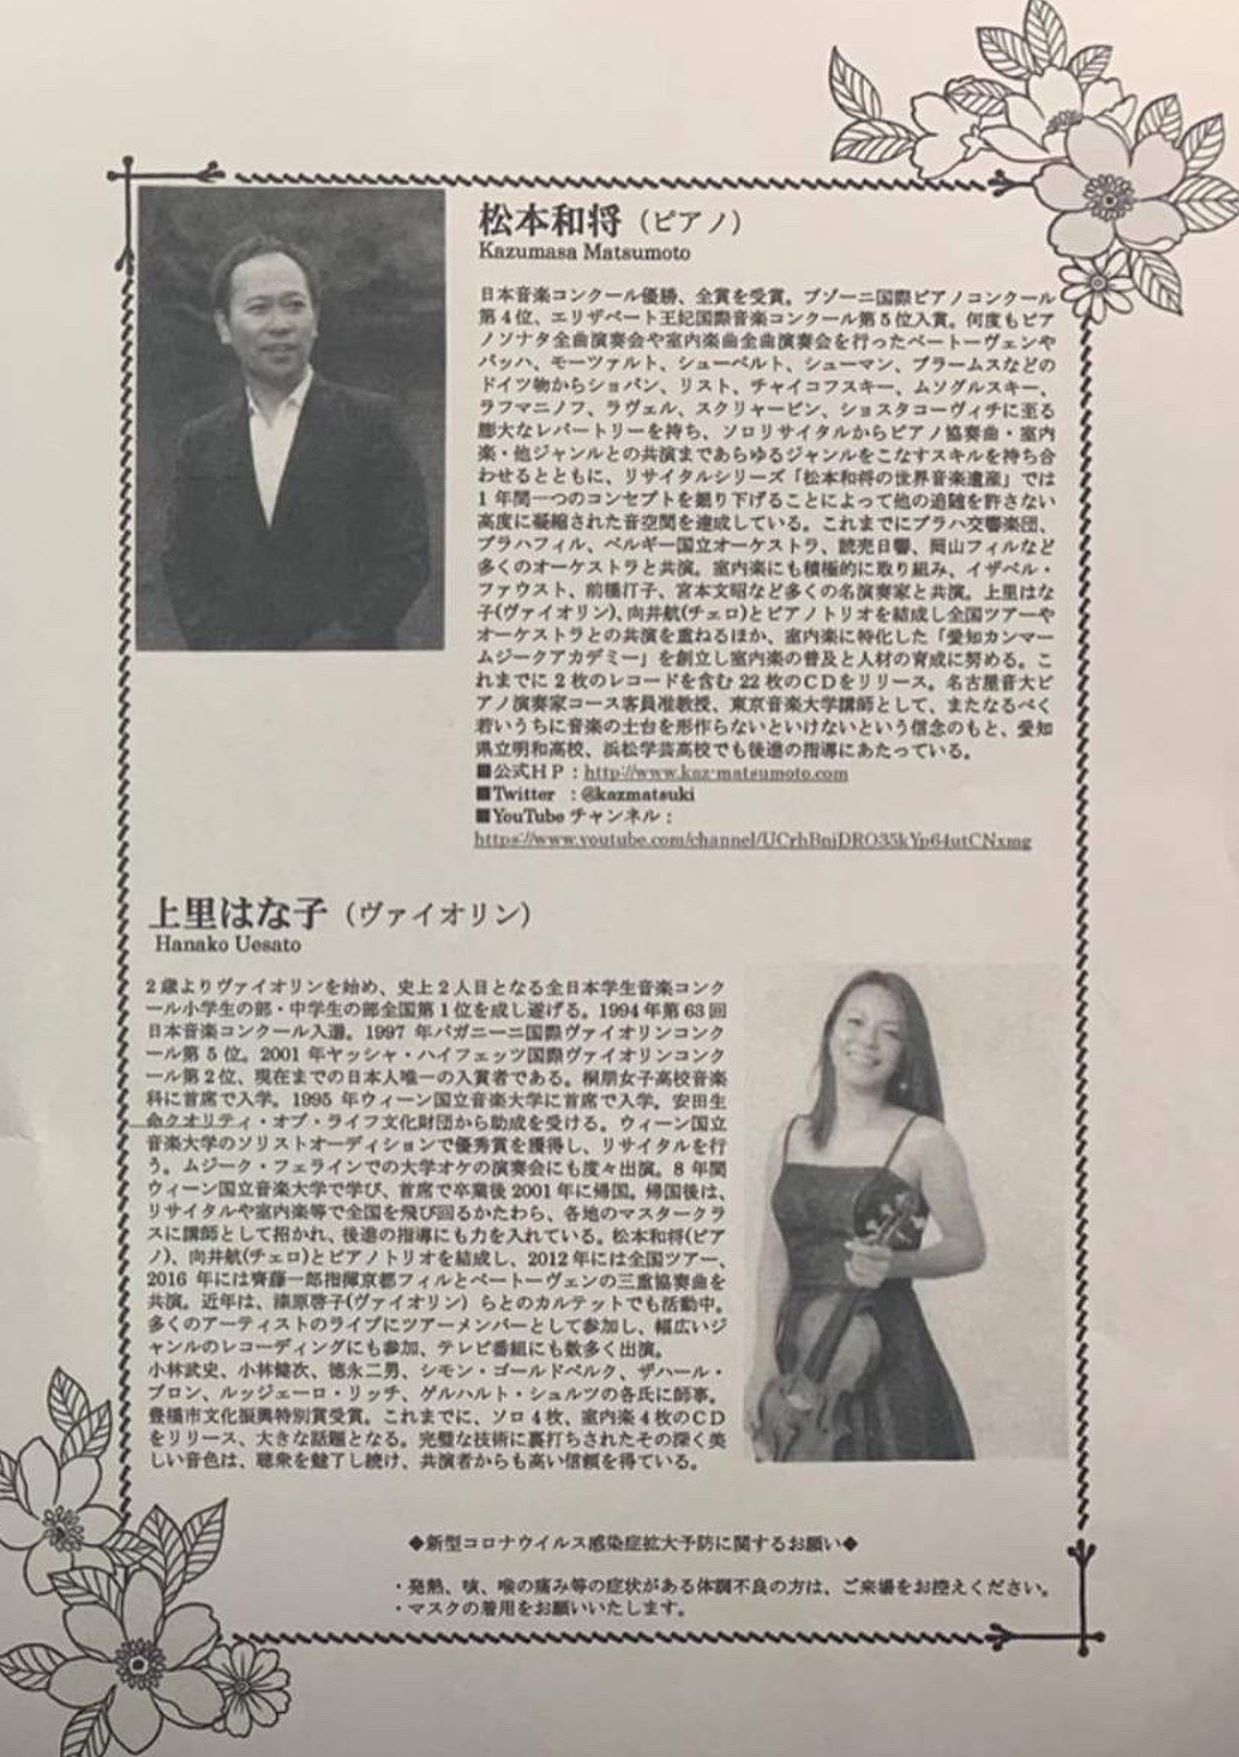 松本和将（ピアノ）
Kazumasa Matsumoto
日本音楽コンクール優勝、全賞を受賞。ブゾーニ国際ピアノコンクール
第4位、エリザベート王妃国際音楽コンクール第5位入賞。何度もピア
ノソナタ全曲演奏会や室内楽曲全曲演奏会を行ったベートーヴェンや
バッハ、モーツァルト、シューベルト、シューマン、ブラームスなどの
ドイツ物からショパン、リスト、チャイコフスキー、ムソグルスキー、
ラフマニノフ、ラヴェル、スクリャービン、ショスタコーヴィチに至る
膨大なレパートリーを持ち、ソロリサイタルからピアノ協奏曲・室内
楽・他ジャンルとの共演まであらゆるジャンルをこなすスキルを持ち合
わせるとともに、リサイタルシリーズ「松本和将の世界音楽遺産」では
1年間一つのコンセプトを掘り下げることによって他の追随を許さない
高度に凝縮された音空間を達成している。これまでにプラハ交響楽団、
プラハフィル、ベルギー国立オーケストラ、読売日響、岡山フィルなど
多くのオーケストラと共演。室内楽にも積極的に取り組み、イザベル・
ファウスト、前橋汀子、宮本文昭など多くの名演奏家と共演。上里はな
子(ヴァイオリン)、向井航(チェロ)とピアノトリオを結成し全国ツアーや
オーケストラとの共演を重ねるほか、室内楽に特化した「愛知カンマー
ムジークアカデミー」を創立し室内楽の普及と人材の育成に努める。こ
れまでに2枚のレコードを含む22枚のCDをリリース。名古屋音大ピ
アノ演奏家コース客員准教授、東京音楽大学講師として、またなるべく
若いうちに音楽の土台を形作らないといけないという信念のもと、愛知
県立明和高校、浜松学芸高校でも後進の指導にあたっている。
■公式HP：http://www.kaz-matsumoto.com
■Twitter ：@kazmatsuki
■YouTubeチャンネル：
https://www.youtube.com/channel/UCrhBnjDRO35kYp64utCNxmg
上里はな子（ヴァイオリン）
Hanako Uesato
2歳よりヴァイオリンを始め、史上2人目となる全日本学生音楽コンク
ール小学生の部・中学生の部全国第1位を成し遂げる。1994年第63回
日本音楽コンクール入選。1997年パガニーニ国際ヴァイオリンコンク
ール第5位。2001年ヤッシャ・ハイフェッツ国際ヴァイオリンコンク
ール第2位、現在までの日本人唯一の入賞者である。桐朋女子高校音楽
科に首席で入学。1995年ウィーン国立音楽大学に首席で入学。安田生
命クオリティ・オブ・ライフ文化財団から助成を受ける。ウィーン国立
音楽大学のソリストオーディションで優秀賞を獲得し、リサイタルを行
う。ムジーク・フェラインでの大学オケの演奏会にも度々出演。8年間
ウィーン国立音楽大学で学び、首席で卒業後2001年に帰国。帰国後は、
リサイタルや室内楽等で全国を飛び回るかたわら、各地のマスタークラ
スに講師として招かれ、後進の指導にも力を入れている。松本和将(ピア
ノ)、向井航(チェロ)とピアノトリオを結成し、2012年には全国ツアー、
2016年には齊藤一郎指揮京都フィルとベートーヴェンの三重協奏曲を
共演。近年は、漆原啓子(ヴァイオリン）らとのカルテットでも活動中。
多くのアーティストのライブにツアーメンバーとして参加し、幅広いジ
ャンルのレコーディングにも参加、テレビ番組にも数多く出演。
小林武史、小林健次、徳永二男、シモン・ゴールドベルク、ザハール・
ブロン、ルッジェーロ・リッチ、ゲルハルト・シュルツの各氏に師事。
豊橋市文化振興特別賞受賞。これまでに、ソロ4枚、室内楽4枚のCD
をリリース、大きな話題となる。完璧な技術に裏打ちされたその深く美
しい音色は、聴衆を魅了し続け、共演者からも高い信頼を得ている。
◆新型コロナウイルス感染症拡大予防に関するお願い◆
・発熱、咳、喉の痛み等の症状がある体調不良の方は、ご来場をお控えください。
・マスクの着用をお願いいたします。